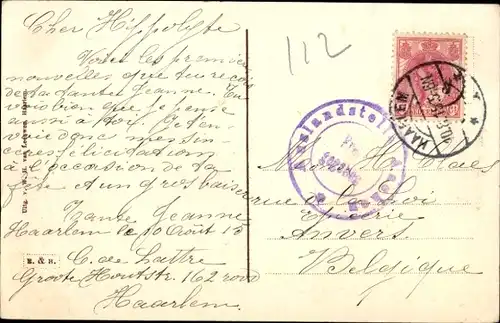 Cher Hippolyte
Voici les premières
nouvelles que tu reçois
de ta tante Jeanne. Tu
vois bien que je pense
aussi à toi. Je t'en-
voie donc mes sin-
cères félicitations
à l'occasion de ta
fête. Un gros baiser
Tante Jeanne
Haarlem le 10 Août 15
C. de Lattre
Groote Houtstr. 162 rood
Haarlem
112
HAARLEM
Auslandstelle Aachen
Mr H. Claes
rue de la Loi
Epicerie
Anvers
Belgique
B. & R.